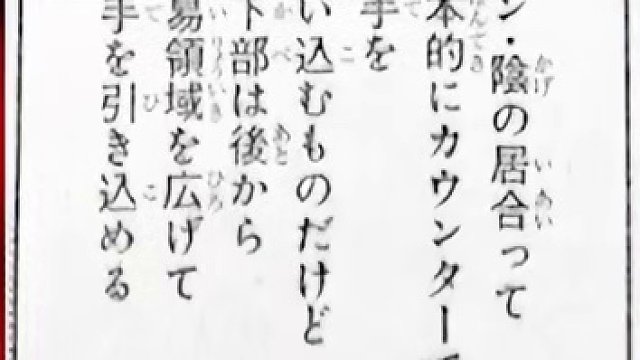 ン・陰の居合って
本的にカウンター
手を
い込むものだけど
下部は後から
易領域を広げて
手を引き込める